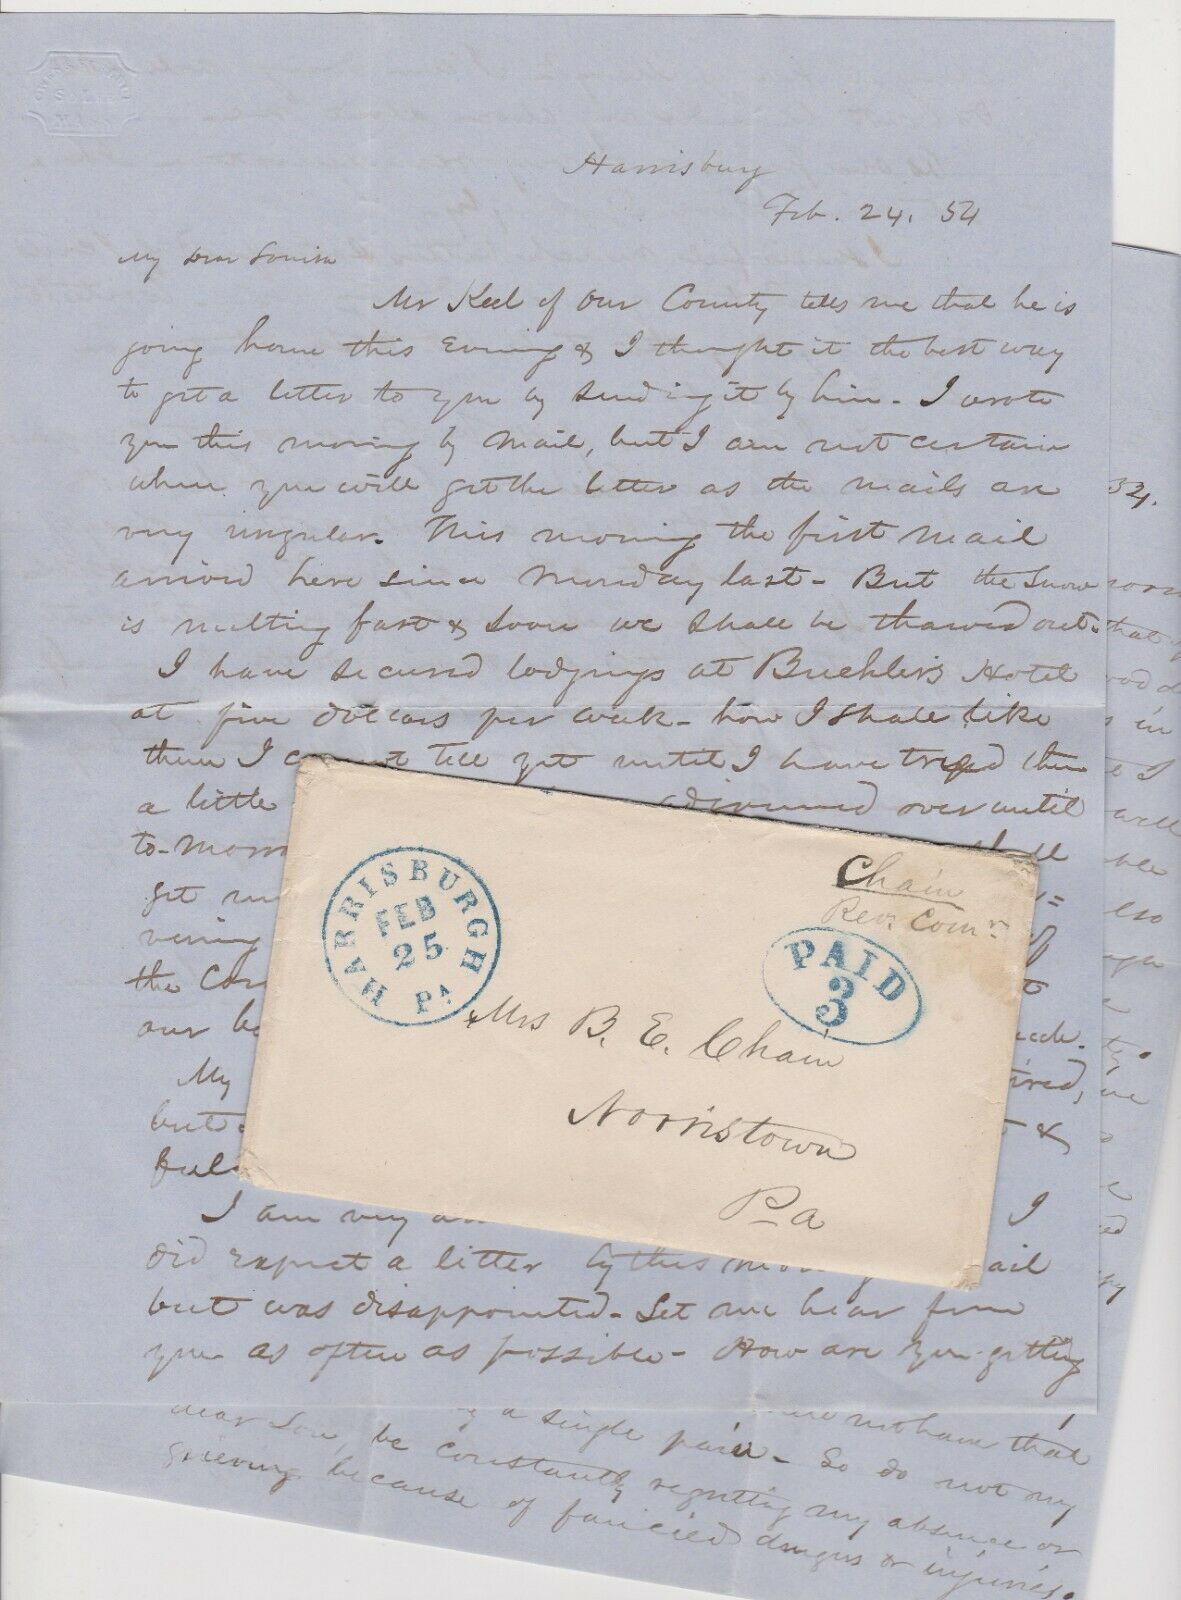 Harrisburg
Feb. 24. 54
My Dear Louisa
Mr Keel of our County tells me that he is
going home this Evening & I thought it the best way
to get a letter to you by sending it by him - I wrote
you this morning by mail, but I am not certain
when you will get the letter as the mails are
very irregular. This morning the first mail
arrived here since Monday last - But the snow
is melting fast & soon we shall be thawed out.
I have secured lodgings at Buehler's Hotel
at five dollars per week - how I shall like
them I cannot tell yet until I have tryed them
a little adjourned over until
to-morr shall
get
vening of
the Con
our
My tired,
but &
ful
I am very I
did expect a letter by this morning mail
but was disappointed - Let me hear from
you as often as possible - How are you getting
HARRISBURGH Pa
FEB
25
Chain
Rev. Comr
PAID
3
Mrs B. E. Chain
Norristown
Pa
a single pain - So do not my
dear Lou, be constantly regretting my absence or
grieving because of fancied dangers or injuries.
not have that
that
in
I
well